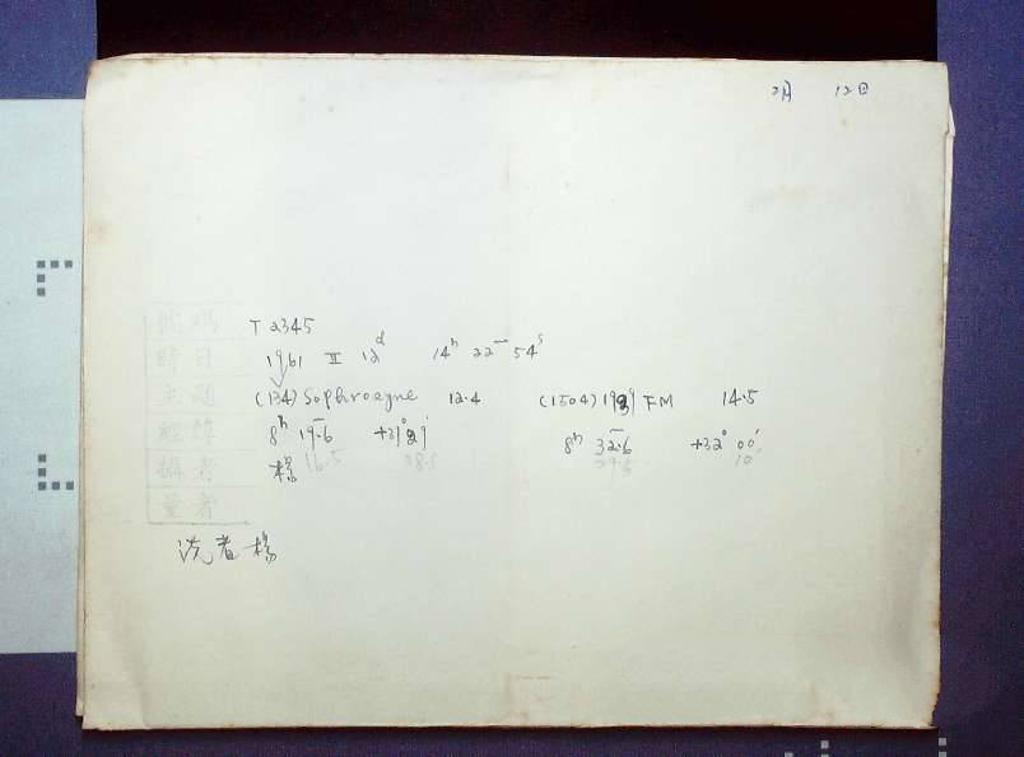 2月 12日
T 2345
時日 1961 II 12d 14h 22m 54s
主題 (134) Sophrosyne 12.4 (1504) 1939 FM 14.5
8h 19m.6 +31° 29' 8h 32m.6 +32° 00'
攝者 楊 16.5 28.5 29.5 10
量者
洗者 楊